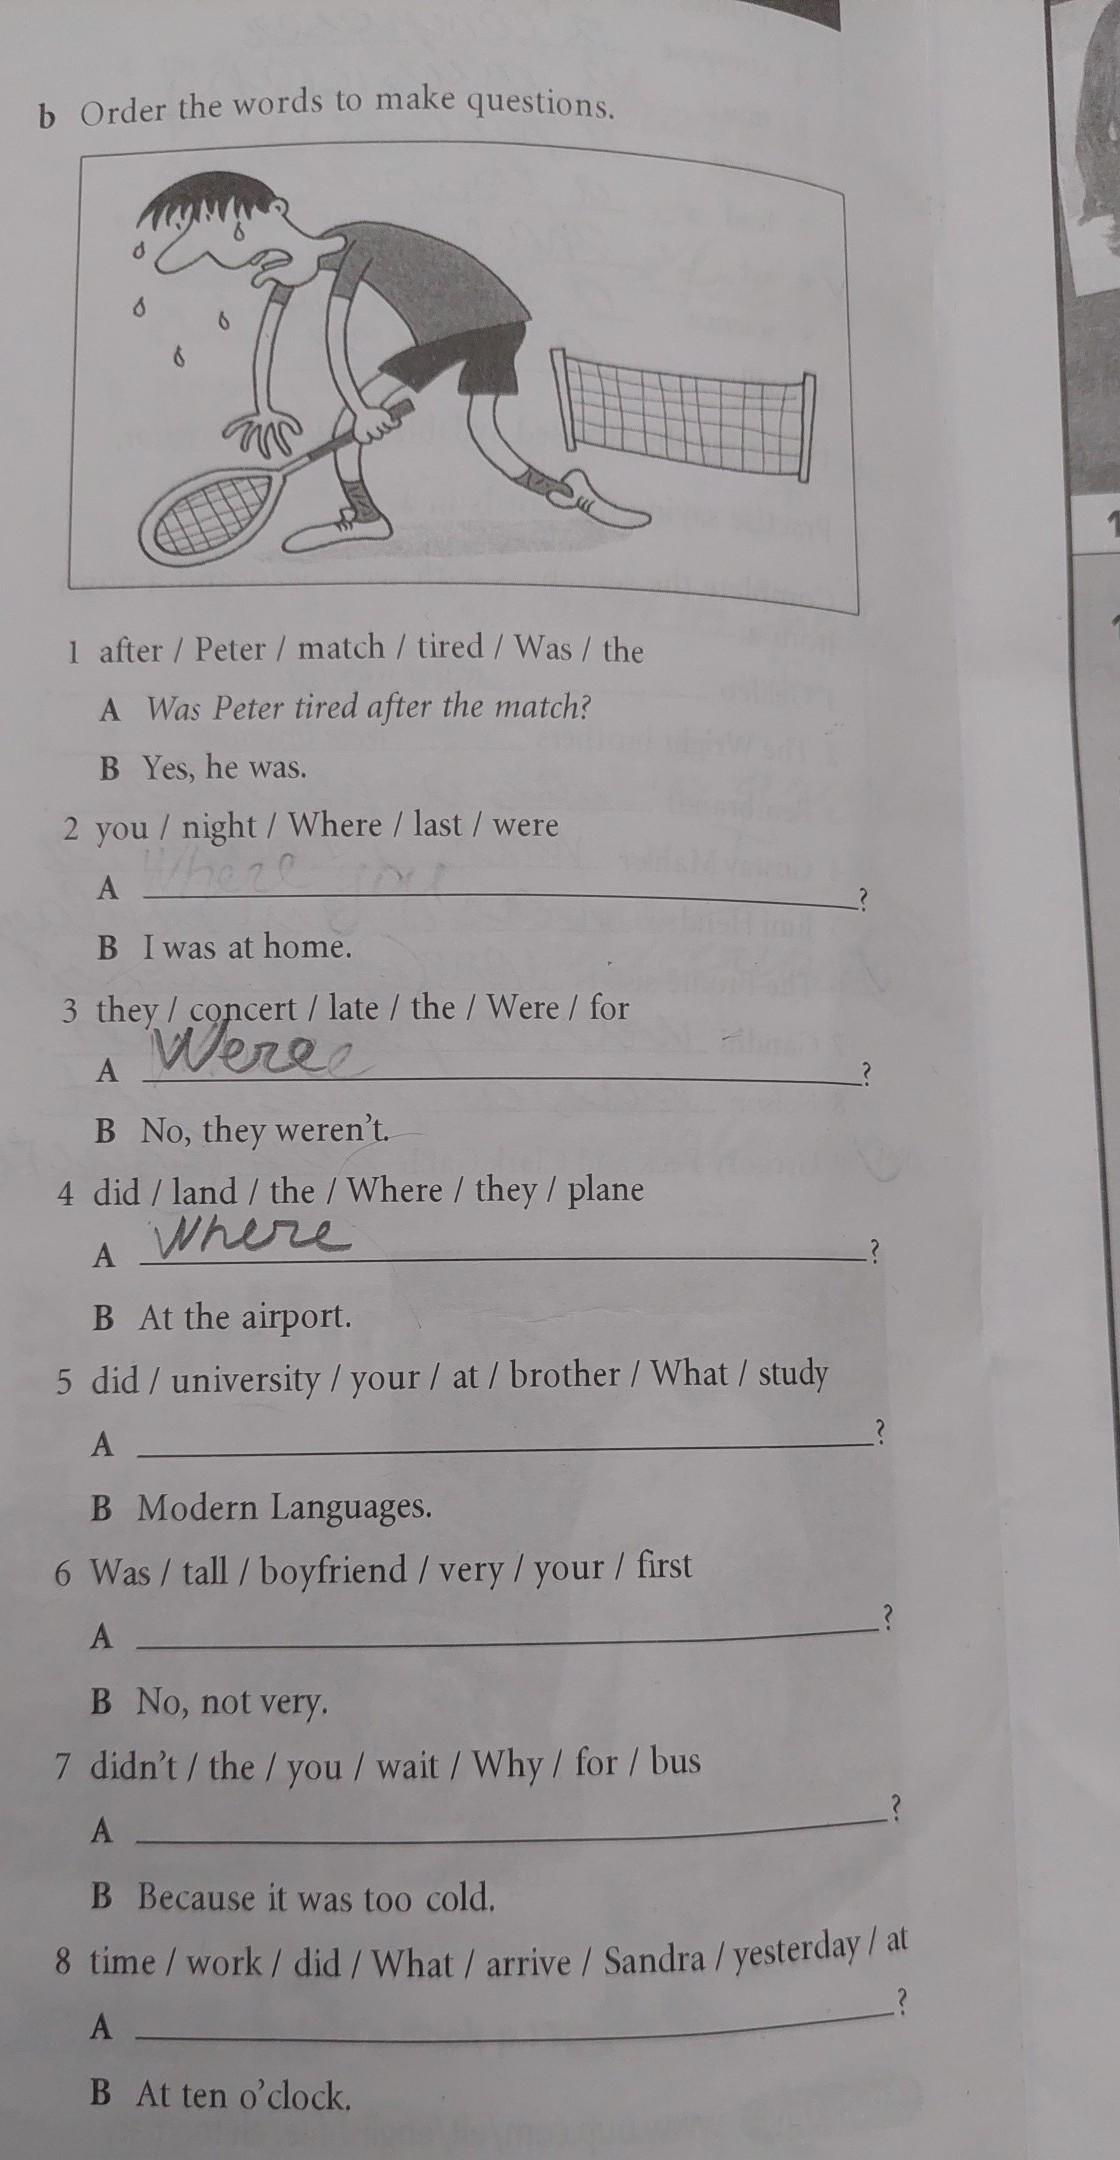 b Order the words to make questions.
1 after / Peter / match / tired / Was / the
A Was Peter tired after the match?
B Yes, he was.
2 you / night / Where / last / were
A Where you ?
B I was at home.
3 they / concert / late / the / Were / for
A Were ?
B No, they weren't.
4 did / land / the / Where / they / plane
A Where ?
B At the airport.
5 did / university / your / at / brother / What / study
A ?
B Modern Languages.
6 Was / tall / boyfriend / very / your / first
A ?
B No, not very.
7 didn't / the / you / wait / Why / for / bus
A ?
B Because it was too cold.
8 time / work / did / What / arrive / Sandra / yesterday / at
A ?
B At ten o'clock.